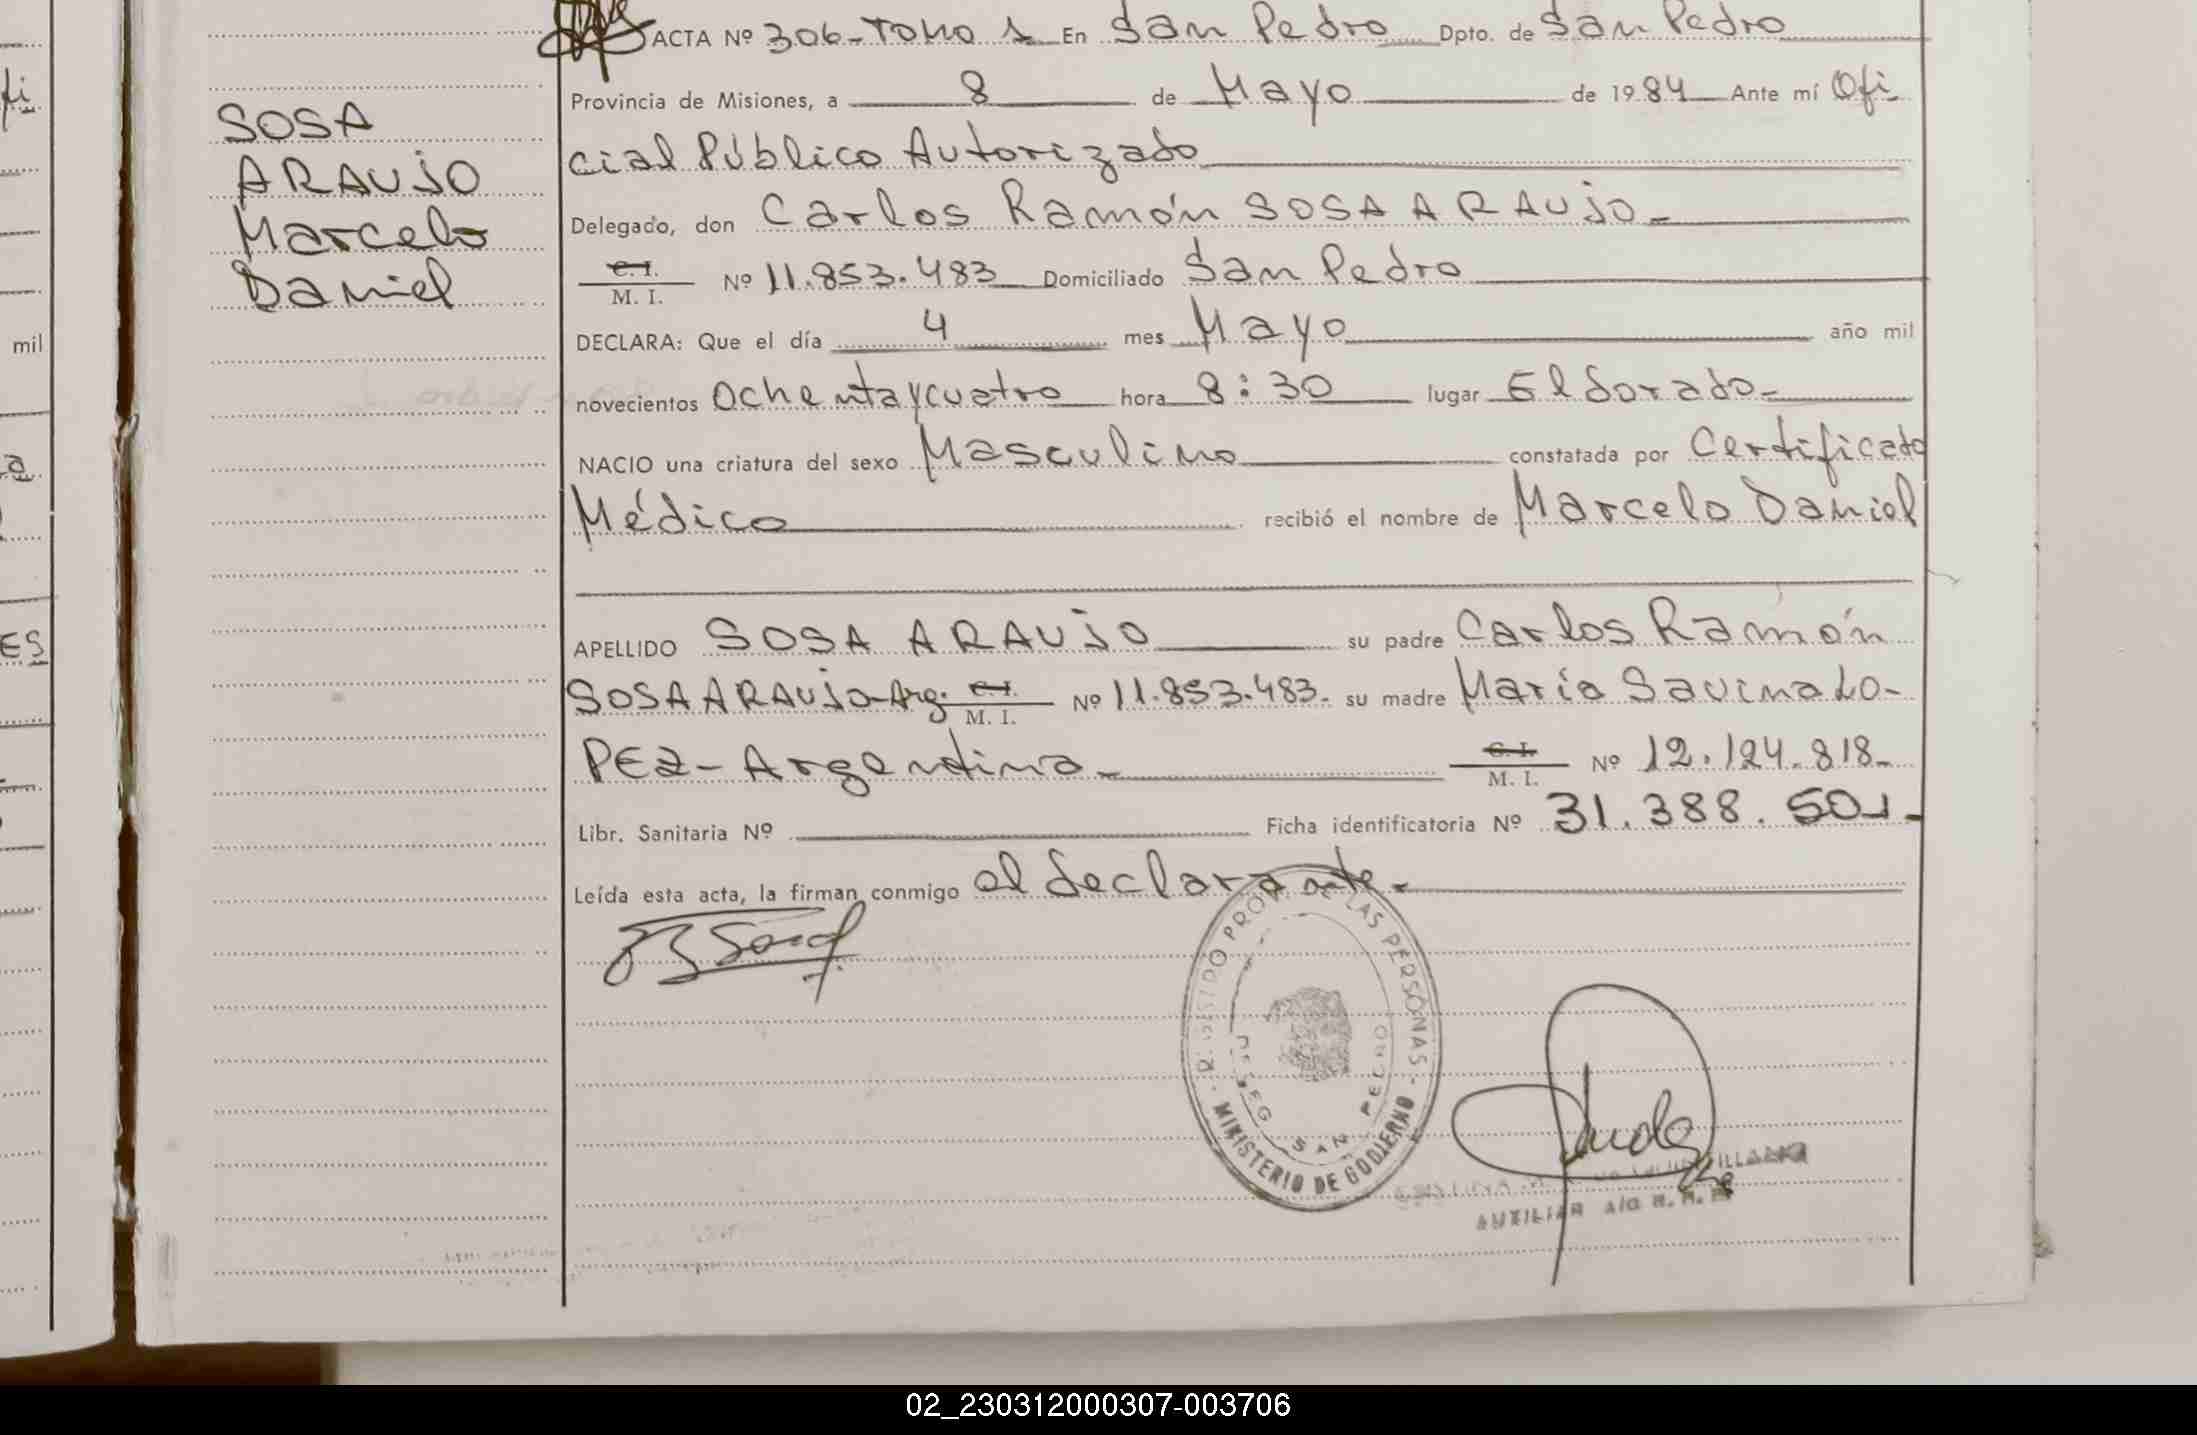 ACTA Nº 306-Tomo 1 En San Pedro Dpto. de San Pedro
Provincia de Misiones, a 8 de Mayo de 1984 Ante mí Ofi
cial Público Autorizado
Delegado, don Carlos Ramón SOSA ARAUJO-
C. I.
M. I. Nº 11.853.483 Domiciliado San Pedro
DECLARA: Que el día 4 mes Mayo año mil
novecientos Ochentaycuatro hora 8:30 lugar Eldorado-
NACIO una criatura del sexo Masculino constatada por Certificado
Médico recibió el nombre de Marcelo Daniel
APELLIDO SOSA ARAUJO su padre Carlos Ramón
SOSA ARAUJO-Arg. C. I. M. I. Nº 11.853.483. su madre María Savina LO-
PEZ- Argentina- C. I. M. I. Nº 12.124.818-
Libr. Sanitaria Nº Ficha identificatoria Nº 31.388.501-
Leída esta acta, la firman conmigo el declarante-
SOSA
ARAUJO
Marcelo
Daniel
fi
mil
a
ES
REGISTRO PROV. DE LAS PERSONAS
MINISTERIO DE GOBIERNO
SAN PEDRO
AUXILIAR
02_230312000307-003706